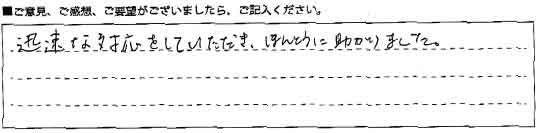 ■ご意見、ご感想、ご要望がございましたら、ご記入ください。
迅速な対応をしていただき、ほんとうに助かりました。